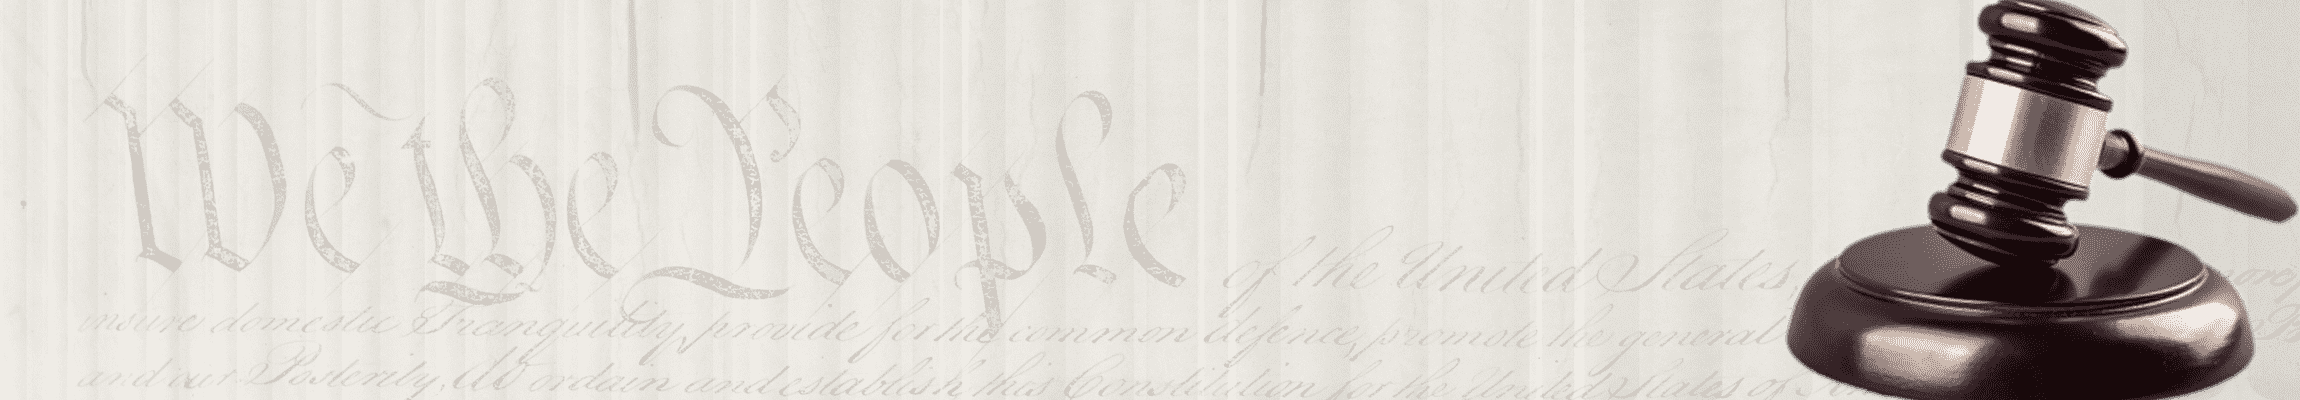 We the People of the United States,
insure domestic Tranquility, provide for the common defence, promote the general
and our Posterity, do ordain and establish this Constitution for the United States of